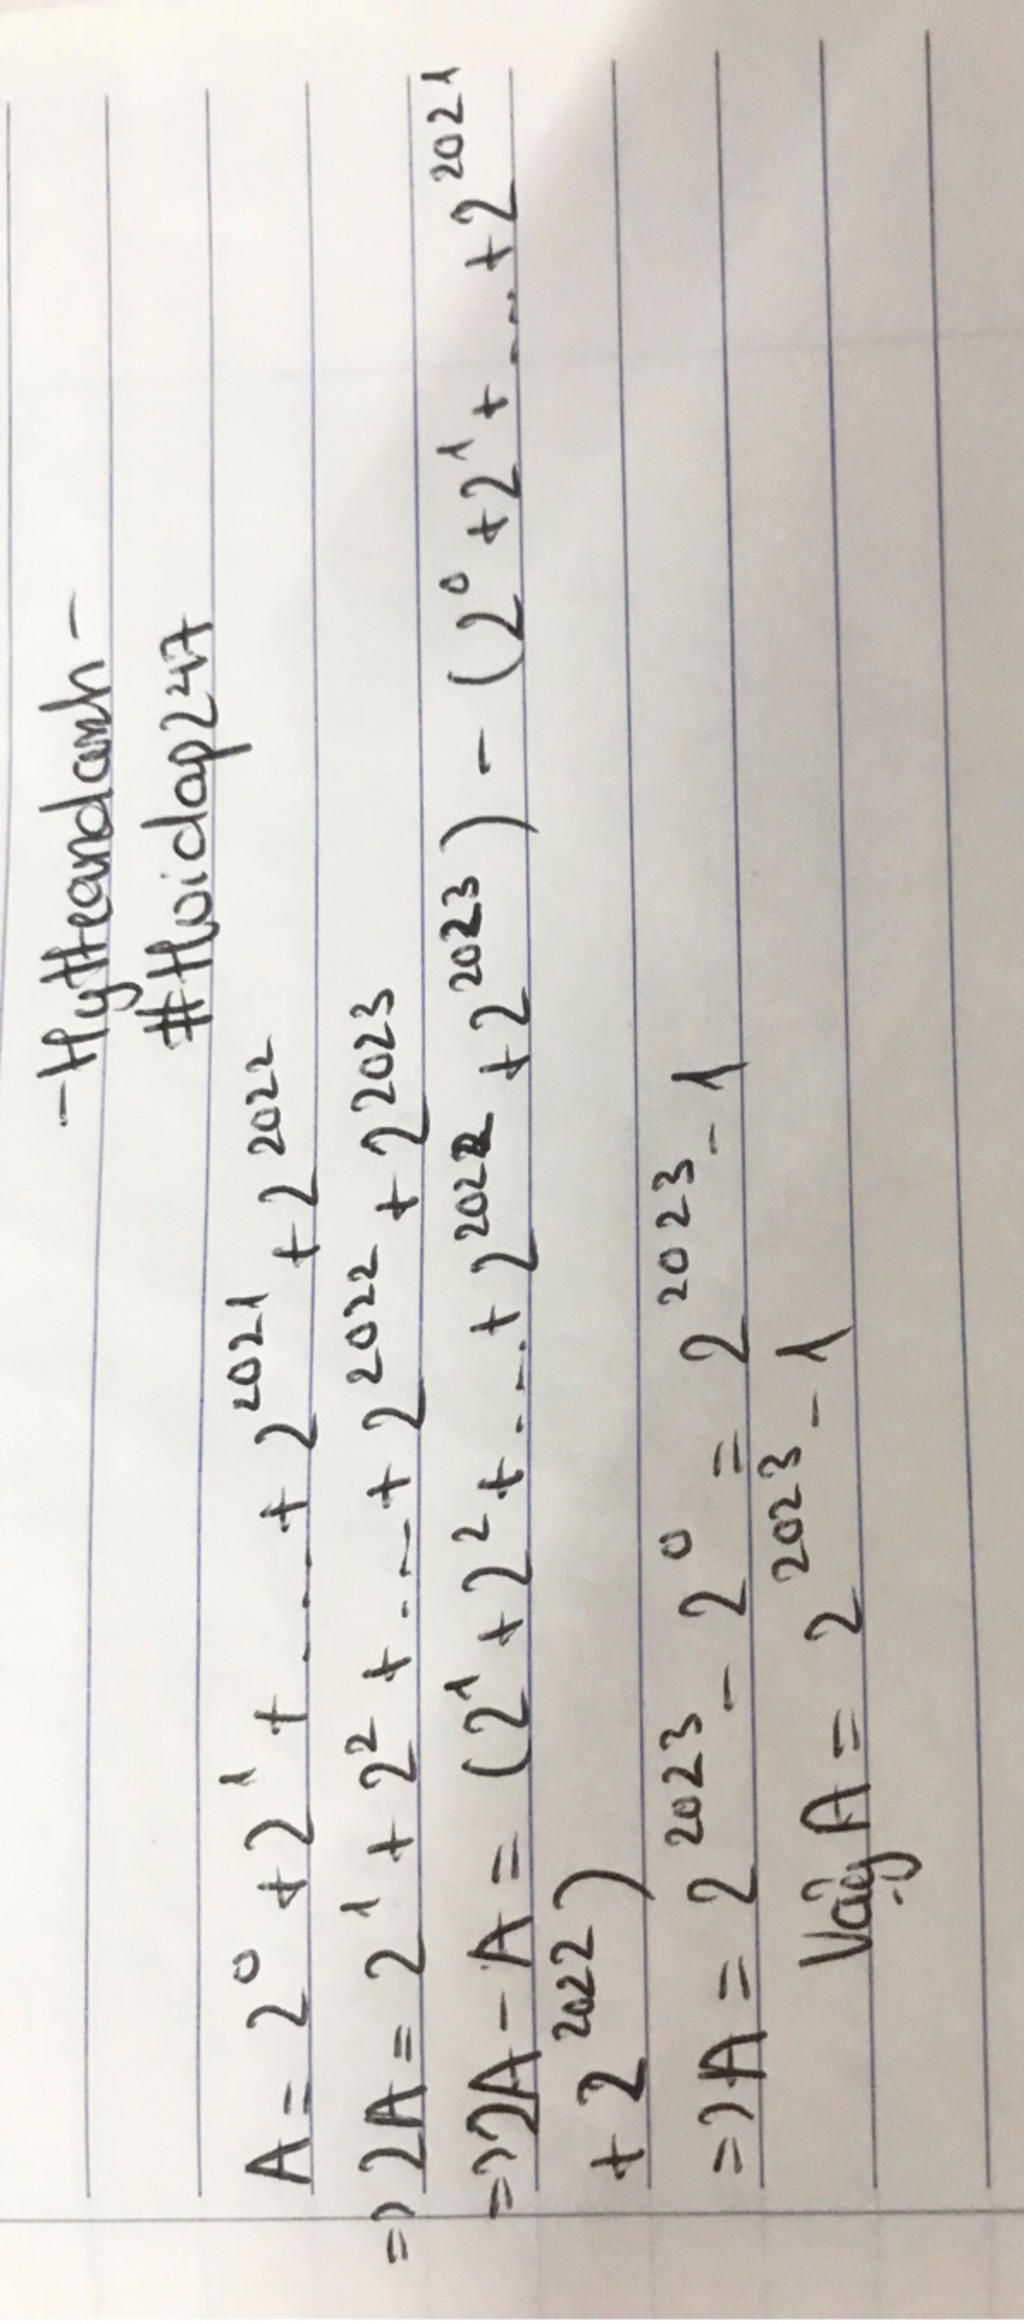 -Hytteandanh-
#Hoidap247
A = 2⁰ + 2¹ + ... + 2²⁰²¹ + 2²⁰²²
=> 2A = 2¹ + 2² + ... + 2²⁰²² + 2²⁰²³
=> 2A - A = (2¹ + 2² + ... + 2²⁰²² + 2²⁰²³) - (2⁰ + 2¹ + ... + 2²⁰²¹
+ 2²⁰²²)
=> A = 2²⁰²³ - 2⁰ = 2²⁰²³ - 1
Vậy A = 2²⁰²³ - 1